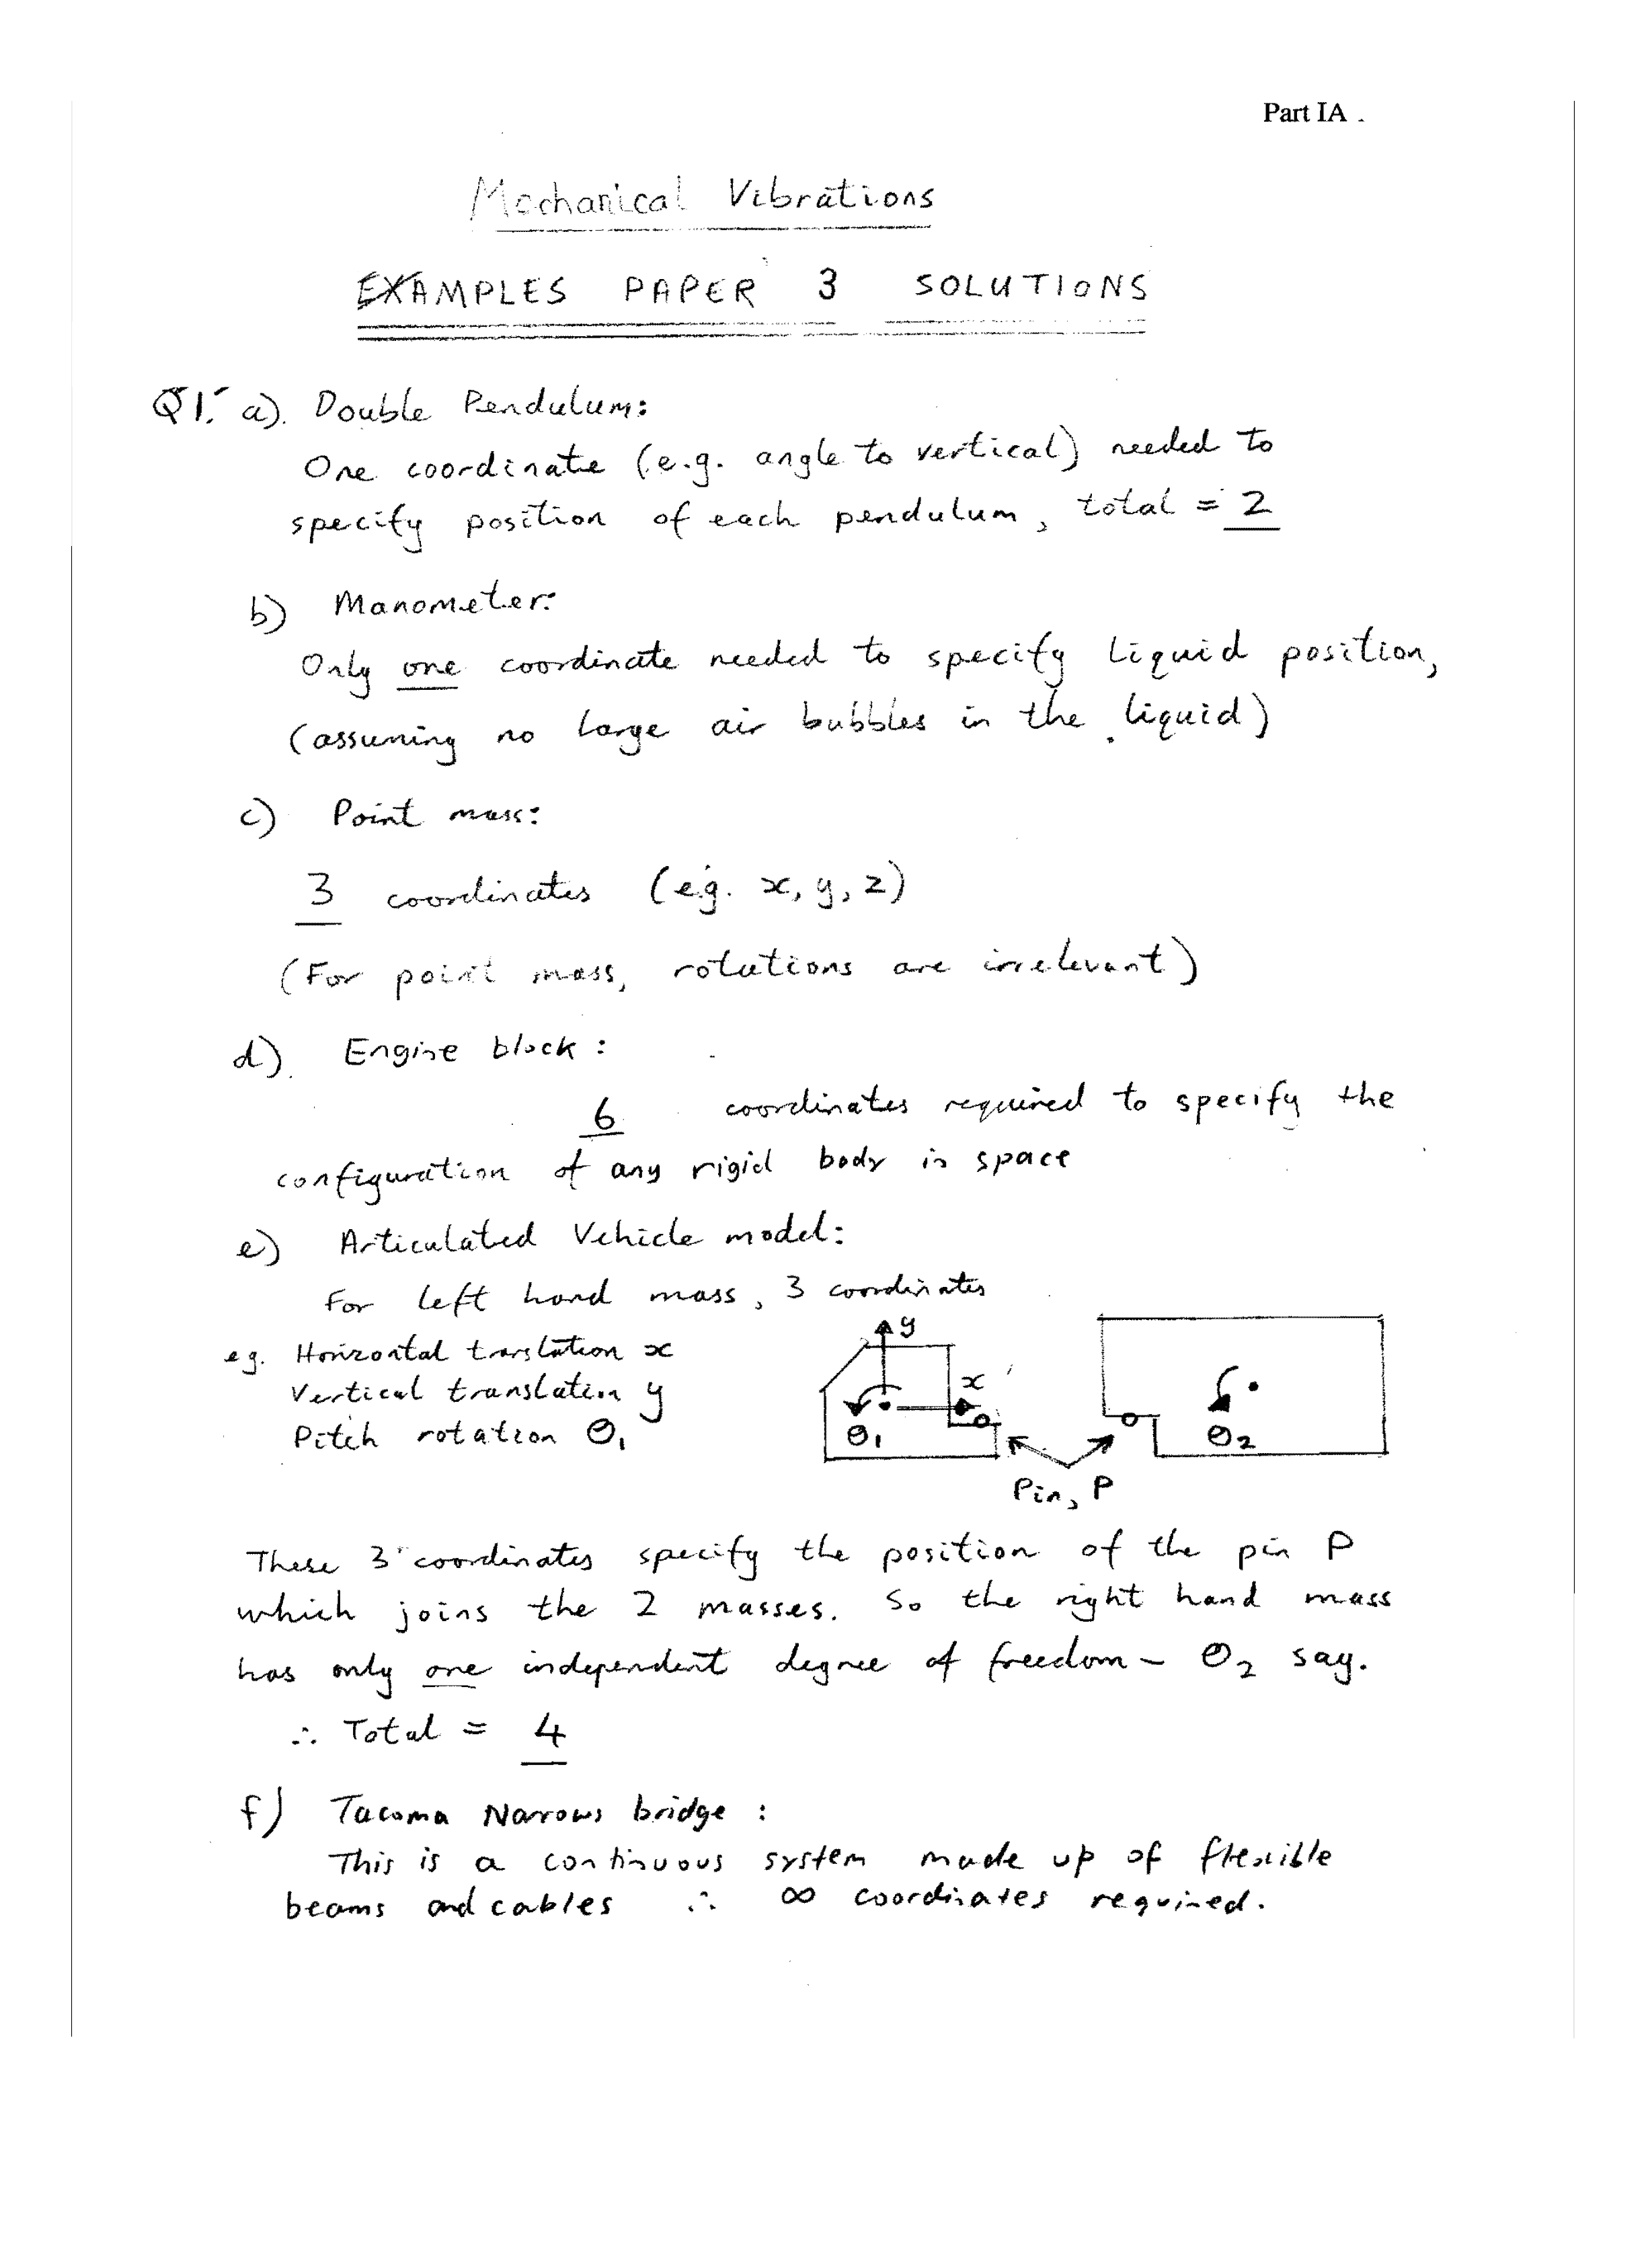 Part IA .
Mechanical Vibrations
EXAMPLES PAPER 3 SOLUTIONS
Q1. a). Double Pendulum:
One coordinate (e.g. angle to vertical) needed to
specify position of each pendulum, total = 2
b) Manometer:
Only one coordinate needed to specify liquid position,
(assuming no large air bubbles in the liquid)
c) Point mass:
3 coordinates (e.g. x, y, z)
(For point mass, rotations are irrelevant)
d). Engine block :
6 coordinates required to specify the
configuration of any rigid body in space
e) Articulated Vehicle model:
For left hand mass, 3 coordinates
eg. Horizontal translation x
Vertical translation y
Pitch rotation θ₁
y
x
θ₁
θ₂
Pin, P
These 3 coordinates specify the position of the pin P
which joins the 2 masses. So the right hand mass
has only one independent degree of freedom - θ₂ say.
∴ Total = 4
f) Tacoma Narrows bridge :
This is a continuous system made up of flexible
beams and cables ∴ ∞ coordinates required.